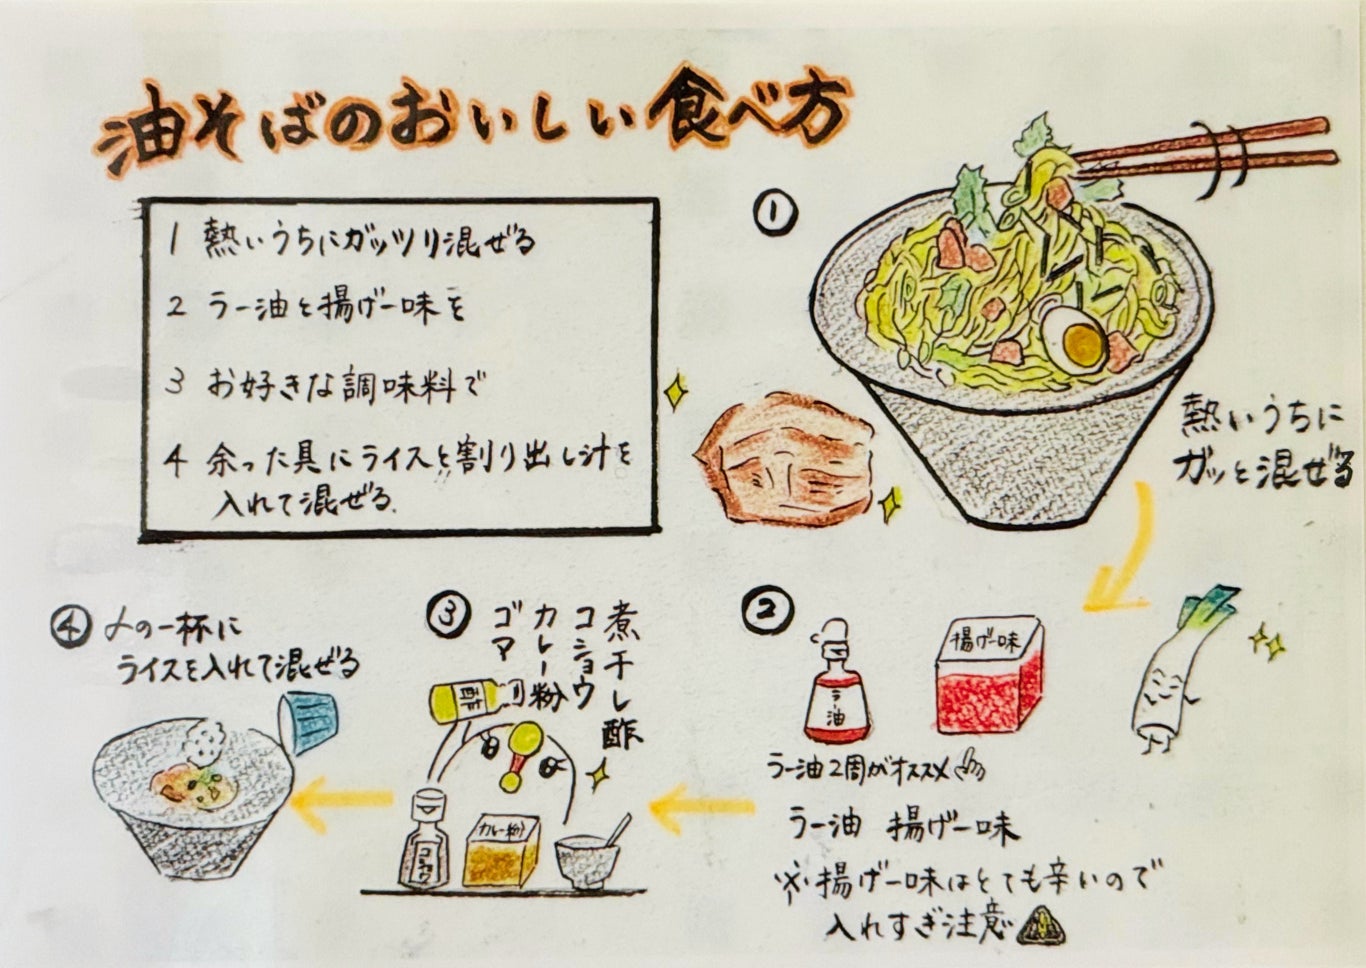 油そばのおいしい食べ方
1 熱いうちにガッツリ混ぜる
2 ラー油と揚げ一味を
3 お好きな調味料で
4 余った具にライスと割り出し汁を
入れて混ぜる.
①
熱いうちに
ガッと混ぜる
②
ラー油
揚げ一味
ラー油2周がオススメ
ラー油 揚げ一味
※揚げ一味はとても辛いので
入れすぎ注意
③
煮干し酢
コショウ
カレー粉
ゴマ
酢
コショウ
カレー粉
④ 〆の一杯に
ライスを入れて混ぜる